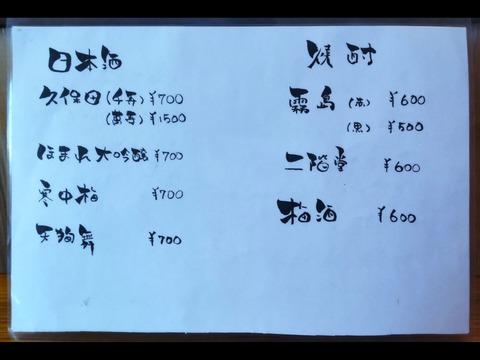 日本酒
久保田(千寿)¥700
(萬寿)¥1500
ほまれ大吟醸¥700
寒中梅 ¥700
天狗舞 ¥700
焼酎
霧島(赤)¥600
(黒)¥500
二階堂 ¥600
梅酒 ¥600